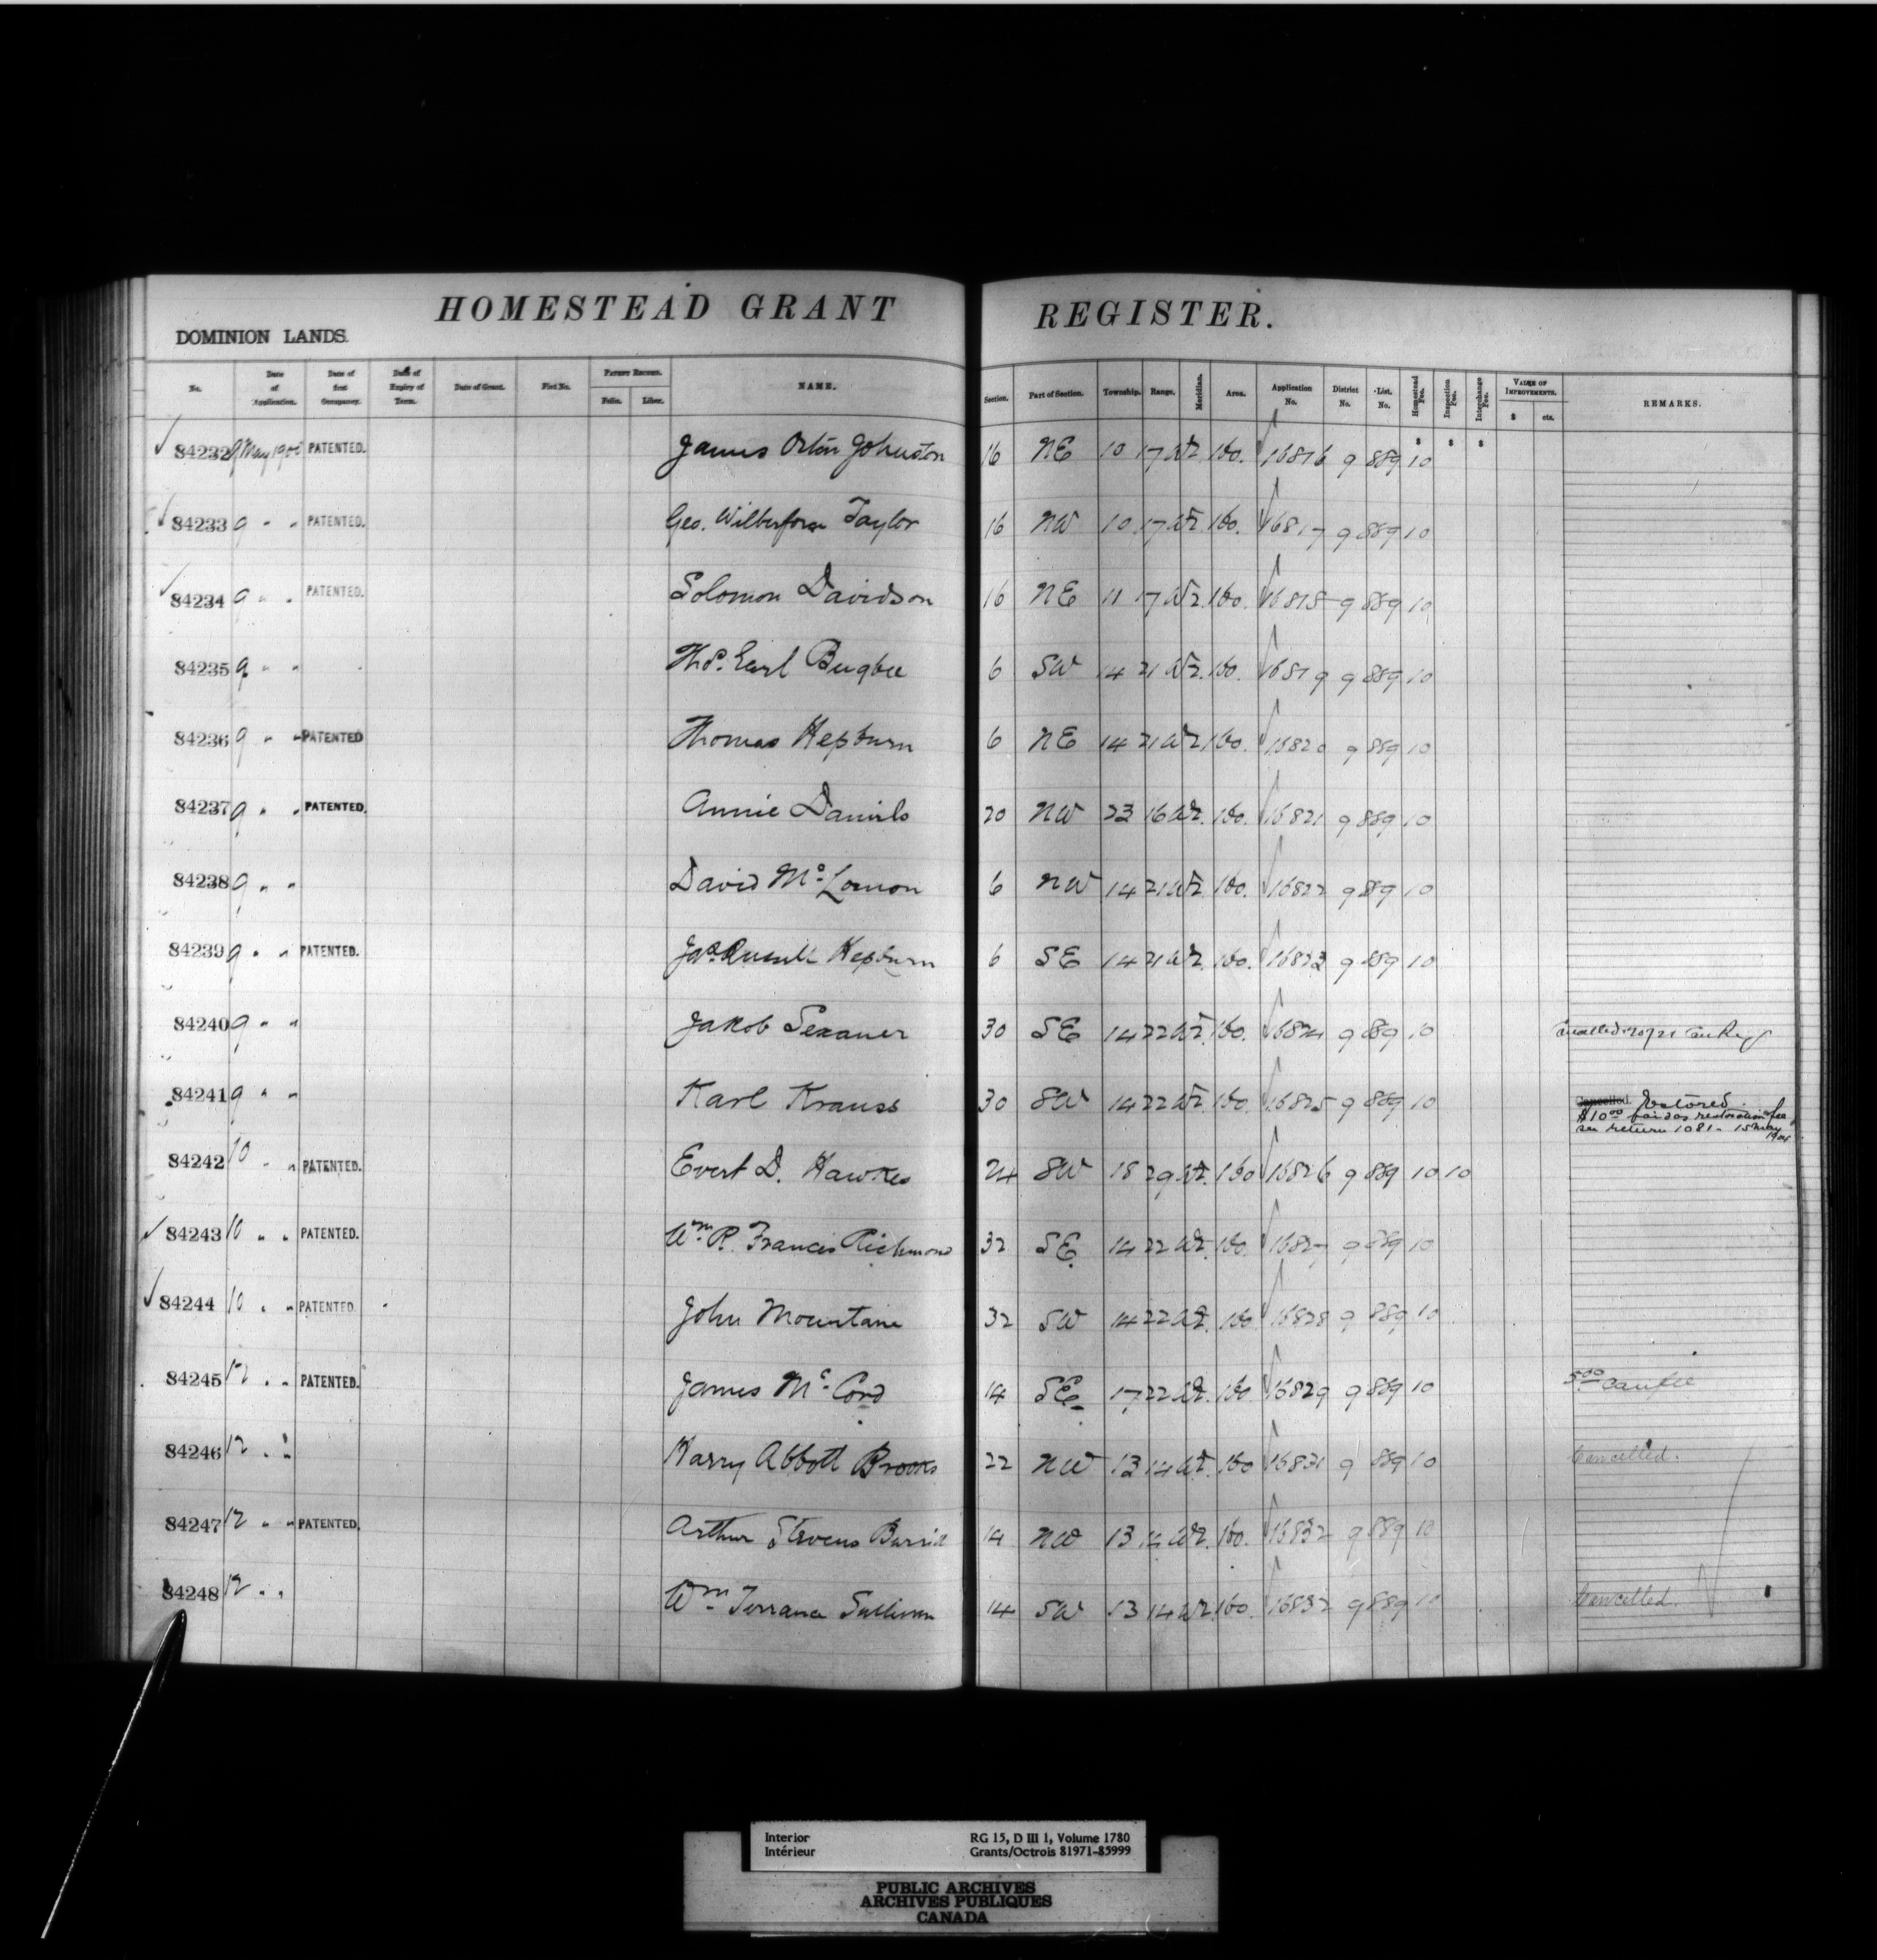 HOMESTEAD GRANT REGISTER.
DOMINION LANDS.
No. Date of Application. Date of first Occupancy. Date of Expiry of Term. Date of Grant. Fiat No. Patent Record. Folio. Liber. NAME. Section. Part of Section. Township. Range. Meridian. Area. Application No. District No. List. No. Homestead Fee. Inspection Fee. Interchange Fee. VALUE OF IMPROVEMENTS. $ cts. REMARKS.
$ $ $
84232 9 May PATENTED. James Orlin Johnston 16 NE 10 17 W2 160. 16816 9 889 10
84233 9 " " PATENTED. Geo. Wilberforce Taylor 16 NW 10 17 W2 160. 16817 9 889 10
84234 9 " " PATENTED. Solomon Davidson 16 NE 11 17 W2 160. 16818 9 889 10
84235 9 " " Thos. Earl Bugbee 6 SW 14 21 W2 160. 16819 9 889 10
84236 9 " " PATENTED Thomas Hepburn 6 NE 14 21 W2 160. 16820 9 889 10
84237 9 " " PATENTED. Annie Daniels 20 NW 23 16 W2. 160. 16821 9 889 10
84238 9 " " David Mc Lomon 6 NW 14 21 W2 160. 16822 9 889 10
84239 9 " " PATENTED. Jas. Russell Hepburn 6 SE 14 21 W2. 160. 16823 9 889 10
84240 9 " " Jakob Sexauer 30 SE 14 22 W2. 160. 16824 9 889 10
84241 9 " " Karl Krauss 30 SW 14 22 W2. 160. 16825 9 889 10 Cancelled. Restored.
$10.00 paid as restoration fee
see return 1081 - 15 May
84242 10 " " PATENTED. Evert D. Hawkes 24 SW 18 29 W2. 160 16826 9 889 10 10
84243 10 " " PATENTED. Wm R. Francis Richmond 32 SE. 14 22 W2. 160. 16827 9 889 10
84244 10 " " PATENTED. John Mountain 32 SW 14 22 W2. 160 16828 9 889 10
84245 12 " " PATENTED. James Mc Cord 14 SE 17 22 W2. 160. 16829 9 889 10 5.00 can fee
84246 12 " " Harry Abbott Brooks 22 NW 13 14 W2. 160 16831 9 889 10 Cancelled.
84247 12 " " PATENTED. Arthur Stevens 14 NW 13 14 W2. 160. 16832 9 889 10
84248 12 " " Wm Terrance Sullivan 14 SW 13 14 W2 160. 16832 9 889 10 Cancelled.
Interior RG 15, D III 1, Volume 1780
Intérieur Grants/Octrois 81971-85999
PUBLIC ARCHIVES
ARCHIVES PUBLIQUES
CANADA